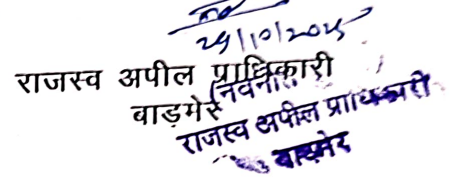 29/10/2025
राजस्व अपील प्राधिकारी
बाड़मेर
राजस्व अपील प्राधिकारी
बाड़मेर